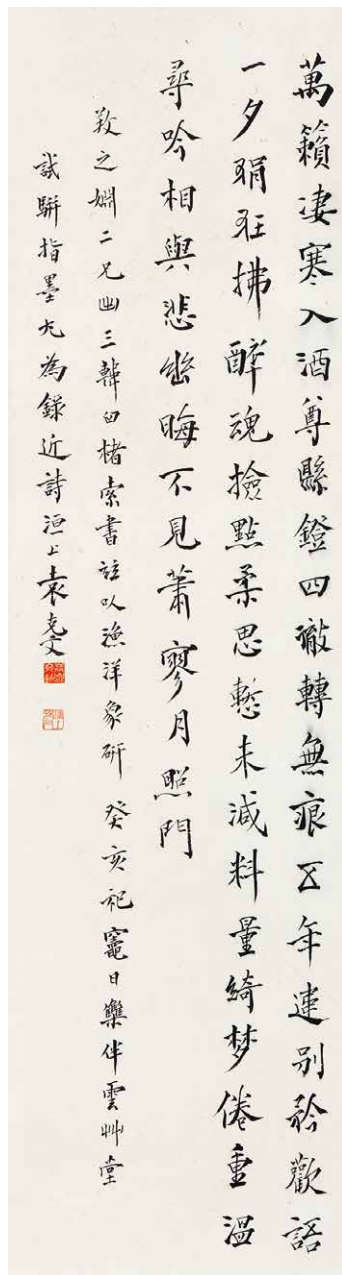 萬籟淒寒入酒尊縣鐙四徹轉無痕五年連別矜歡語
一夕狷狂拂醉魂撿點柔思慙未減料量綺梦倦重温
尋吟相與悲幽晦不見蕭寥月照門
之淵二兄幽三韓白楮索書試以漁洋象研 癸亥祀竈日樂伴雲艸堂
試駢指墨尤為錄近詩洹上袁克文